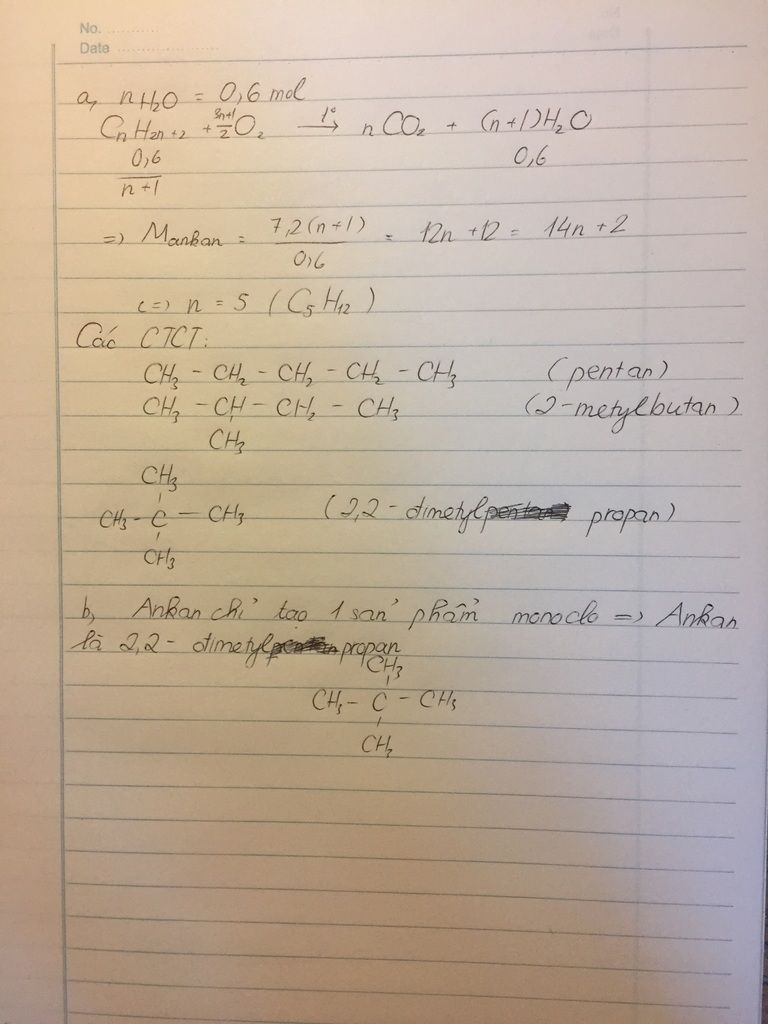 No. ............
Date ........................
a, nH2O = 0,6 mol
CnH2n+2 + 3n+1/2 O2 —t°→ nCO2 + (n+1)H2O
0,6/n+1 0,6
=) Mankan = 7,2(n+1)/0,6 = 12n +12 = 14n +2
(=) n = 5 (C5H12)
Các CTCT:
CH3 - CH2 - CH2 - CH2 - CH3 (pentan)
CH3 - CH - CH2 - CH3 (2-metylbutan)
CH3
CH3
CH3 - C - CH3 (2,2- dimetyl propan)
CH3
b, Ankan chỉ tạo 1 sản phẩm monoclo =) Ankan
là 2,2- dimetyl propan
CH3
CH3 - C - CH3
CH3